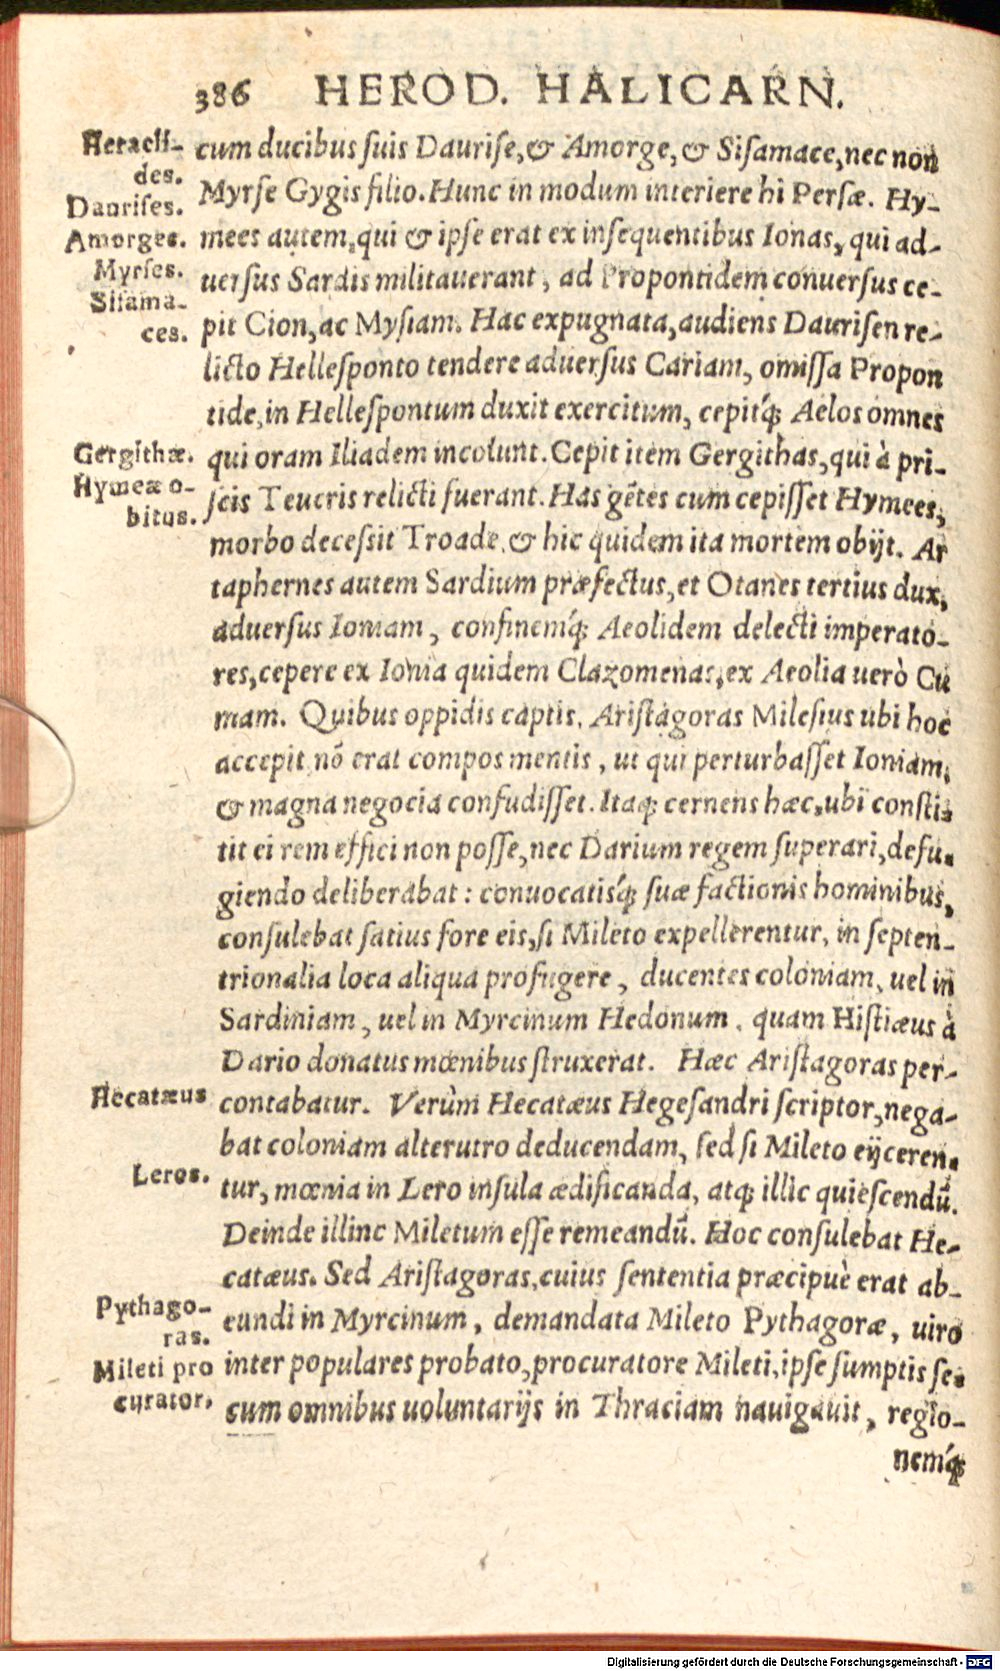 386 HEROD. HALICARN.
Heracli-
des.
Daurises.
Amorges.
Myrses.
Sisama-
ces.
cum ducibus ſuis Dauriſe, & Amorge, & Siſamace, nec non
Myrſe Gygis filio. Hunc in modum interiere hi Perſæ. Hy-
mees autem, qui & ipſe erat ex inſequentibus Ionas, qui ad-
uerſus Sardis militauerant, ad Propontidem conuerſus ce-
pit Cion, ac Myſiam. Hac expugnata, audiens Dauriſen re-
licto Helleſponto tendere aduerſus Cariam, omiſſa Propon
tide, in Helleſpontum duxit exercitum, cepitq́; Aelos omnes
Gergithæ.
Hymeæ o-
bitus.
qui oram Iliadem incolunt. Cepit item Gergithas, qui à pri-
ſcis Teucris relicti fuerant. Has gẽtes cum cepiſſet Hymees,
morbo deceſsit Troade, & hic quidem ita mortem obijt. Ar
taphernes autem Sardium præfectus, et Otanes tertius dux,
aduerſus Ioniam, confinemq́; Aeolidem delecti imperato-
res, cepere ex Ionia quidem Clazomenas, ex Aeolia uerò Cu
mam. Quibus oppidis captis, Ariſtagoras Mileſius ubi hoc
accepit, nõ erat compos mentis, ut qui perturbaſſet Ioniam,
& magna negocia confudiſſet. Itaq; cernens hæc, ubi conſti-
tit ei rem effici non poſſe, nec Darium regem ſuperari, defu-
giendo deliberabat: conuocatisq́; ſuæ factionis hominibus,
conſulebat ſatius fore eis, ſi Mileto expellerentur, in ſepten-
trionalia loca aliqua profugere, ducentes coloniam, uel in
Sardiniam, uel in Myrcinum Hedonum, quam Hiſtiæus à
Dario donatus mœnibus ſtruxerat. Hæc Ariſtagoras per-
Hecatæus
contabatur. Verùm Hecatæus Hegeſandri ſcriptor, nega-
bat coloniam alterutro deducendam, ſed ſi Mileto eijceren-
Leros.
tur, mœnia in Lero inſula ædificanda, atq; illic quieſcendũ.
Deinde illinc Miletum eſſe remeandũ. Hoc conſulebat He-
catæus. Sed Ariſtagoras, cuius ſententia præcipuè erat ab-
Pythago-
ras.
Mileti pro
curator.
eundi in Myrcinum, demandata Mileto Pythagoræ, uiro
inter populares probato, procuratore Mileti, ipſe ſumptis ſe-
cum omnibus uoluntarijs in Thraciam nauigauit, regio-
nemq́;
Digitalisierung gefördert durch die Deutsche Forschungsgemeinschaft - DFG